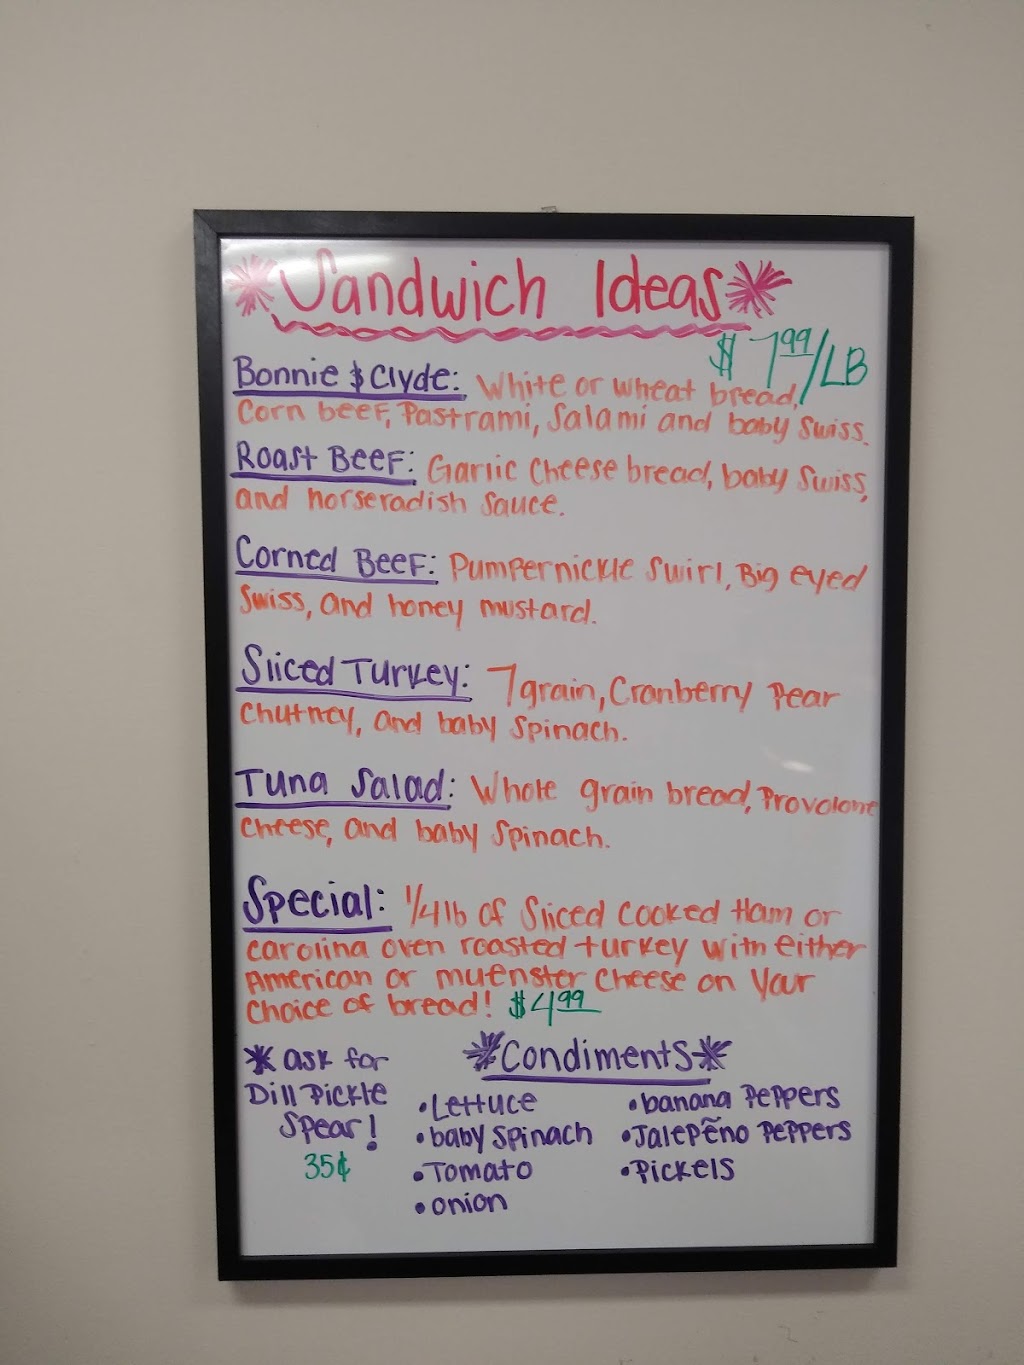 Sandwich Ideas
$7.99/LB
Bonnie & Clyde: White or wheat bread,
Corn beef, Pastrami, Salami and baby Swiss.
Roast Beef: Garlic Cheese bread, baby Swiss,
and horseradish sauce.
Corned Beef: Pumpernickle swirl, Big eyed
Swiss, and honey mustard.
Sliced Turkey: 7 grain, Cranberry Pear
Chutney, and baby spinach.
Tuna Salad: Whole grain bread, Provolone
cheese, and baby spinach.
Special: 1/4 lb of Sliced Cooked Ham or
carolina oven roasted turkey with either
American or muenster cheese on Your
Choice of bread! $4.99
* ask for
Dill Pickle
Spear!
35¢
*Condiments*
• Lettuce
• baby spinach
• Tomato
• onion
• banana Peppers
• Jalepẽno Peppers
• Pickels